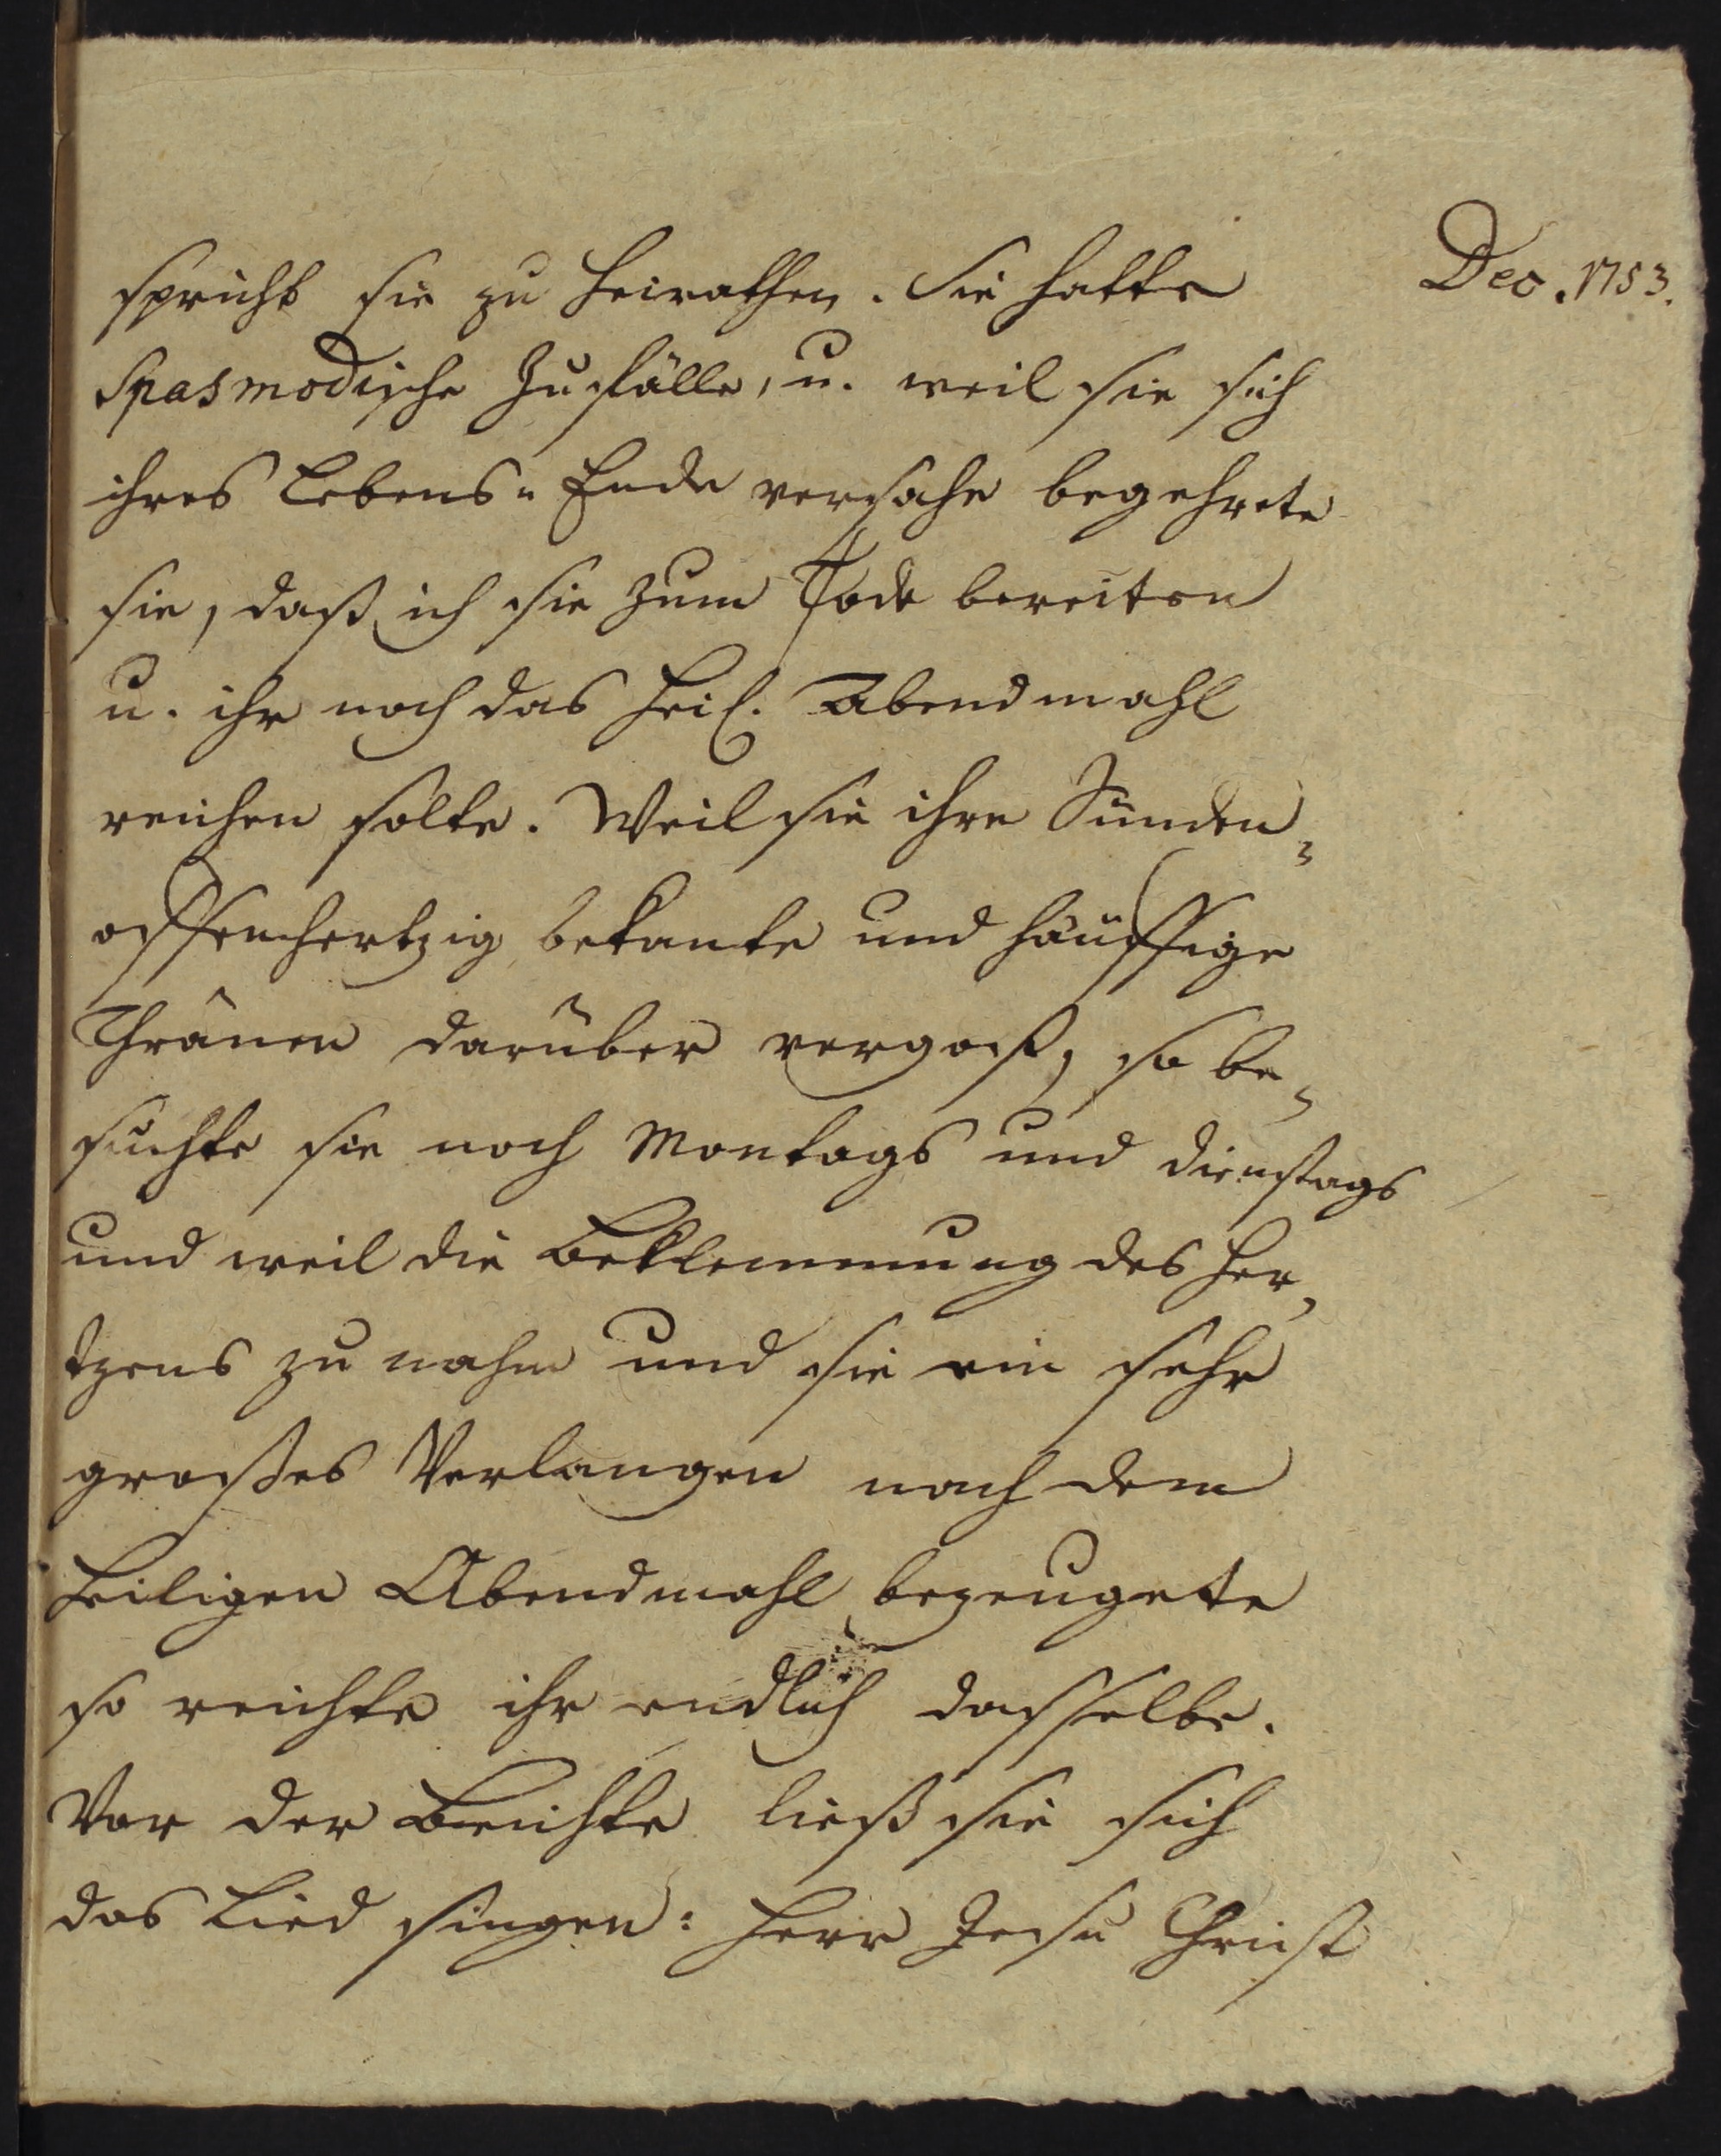 Dec. 1753.
spricht sie zu heirathen. Sie hatte
Spasmodische Zufälle, u. weil sie sich
ihres Lebens-Ende versahe begehrete
sie, daß ich sie zum Tode bereiten
u. ihr noch das heil. Abendmahl
reichen solte. Weil sie ihre Sünden
offenhertzig bekante und häuffige
Thränen darüber vergoß, so be-
suchte sie noch Montags und Dienstags
und weil die Beklemmung des Her-
tzens zu nahm und sie ein sehr
großes Verlangen nach dem
Heiligen Abendmahl bezeugete
so reichte ihr endlich dasselbe.
Vor der Beichte ließ sie sich
das Lied singen: Herr Jesu Christ